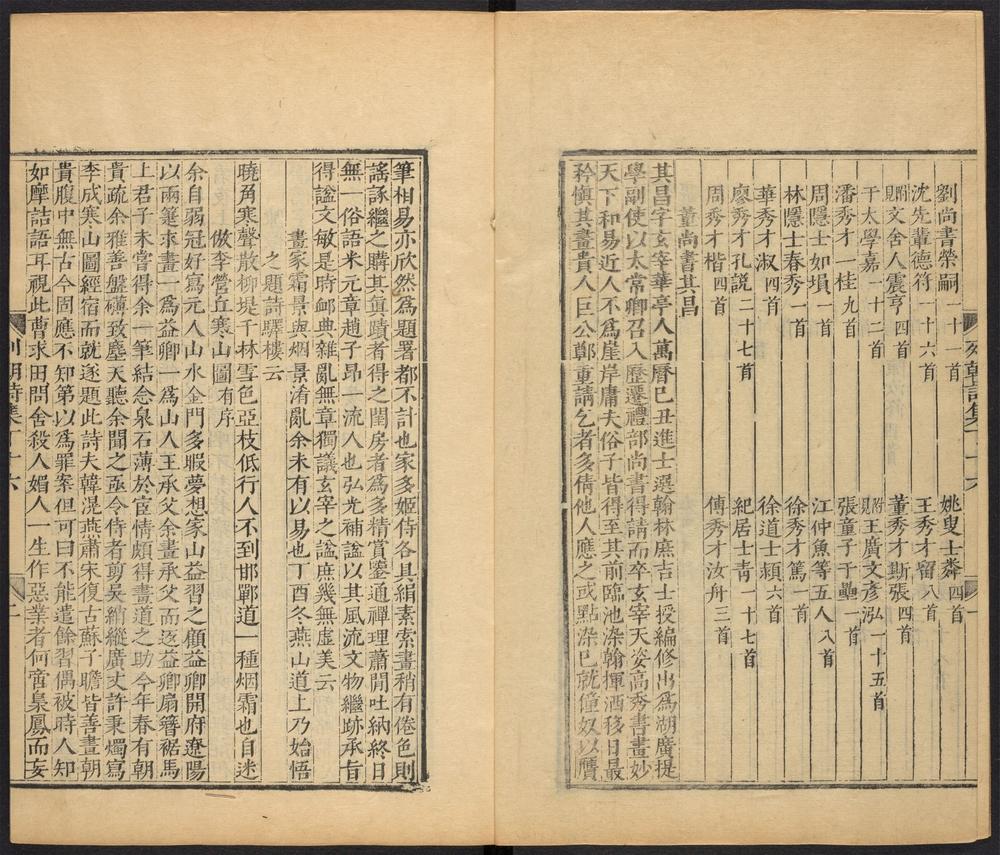 列朝詩集丁十六
一
劉尚書榮嗣一十一首
姚叟士粦四首
沈先輩德符一十六首
王秀才留八首
附見文舍人震亨四首
董秀才斯張四首
于太學嘉一十二首
附見王廣文彥泓一十五首
潘秀才一桂九首
張童子于壘一首
周隱士如塤一首
江仲魚等五人八首
林隱士春秀一首
徐秀才篤一首
華秀才淑四首
徐道士頴六首
廖秀才孔說二十七首
紀居士青一十七首
周秀才楷四首
傅秀才汝舟三首
董尚書其昌
其昌字玄宰華亭人萬曆己丑進士選翰林庶吉士授編修出爲湖廣提
學副使以太常卿召入歷遷禮部尚書得請而卒玄宰天姿高秀書畫妙
天下和易近人不爲崖岸庸夫俗子皆得至其前臨池染翰揮洒移日最
矜愼其畫貴人巨公鄭重請乞者多倩他人應之或點染已就僮奴以贋
筆相易亦欣然爲題署都不計也家多姬侍各具絹素索畫稍有倦色則
謠諑繼之購其眞蹟者得之閨房者爲多精賞鑒通禪理蕭閒吐納終日
無一俗語米元章趙子昂一流人也弘光補諡以其風流文物繼跡承旨
得諡文敏是時邮典雜亂無章獨議玄宰之諡庶幾無虛美云
畫家霜景與烟景淆亂余未有以易也丁酉冬燕山道上乃始悟
之題詩驛樓云
曉角寒聲散柳堤千林雪色亞枝低行人不到邯鄲道一種烟霜也自迷
倣李營丘寒山圖有序
余自弱冠好寫元人山水金門多暇夢想家山益習之顧益卿開府遼陽
以兩箑求畫一爲益卿一爲山人王承父余畫承父而返益卿扇簪裾馬
上君子未嘗得余一筆結念泉石薄於宦情頗得畫道之助今年春有朝
貴疏余雅善盤礴致塵天聽余聞之亟令侍者剪吳綃縱廣丈許秉燭寫
李成寒山圖經宿而就逐題此詩夫韓滉燕肅宋復古蘇子瞻皆善畫朝
貴腹中無古今固應不知第以爲罪案但可曰不能遣餘習偶被時人知
如摩詰語耳視此曹求田問舍殺人媚人一生作惡業者何啻梟鳳而妄
列朝詩集丁十六
二